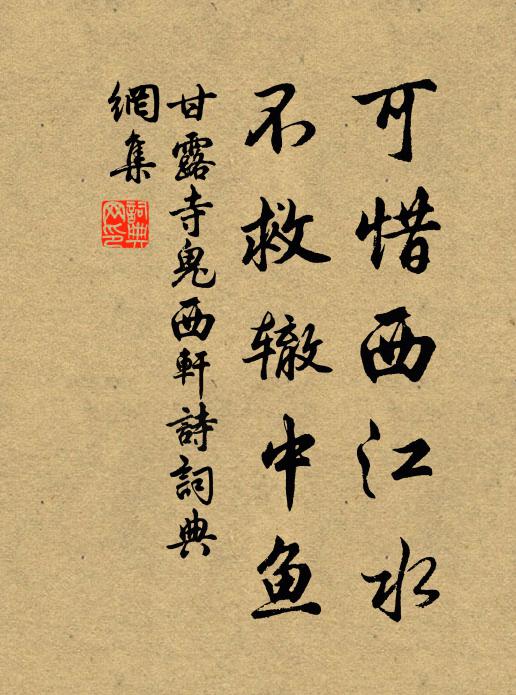 可惜西江水
不救辙中鱼
甘露寺鬼西軒詩詞典
網集
詞典
网印